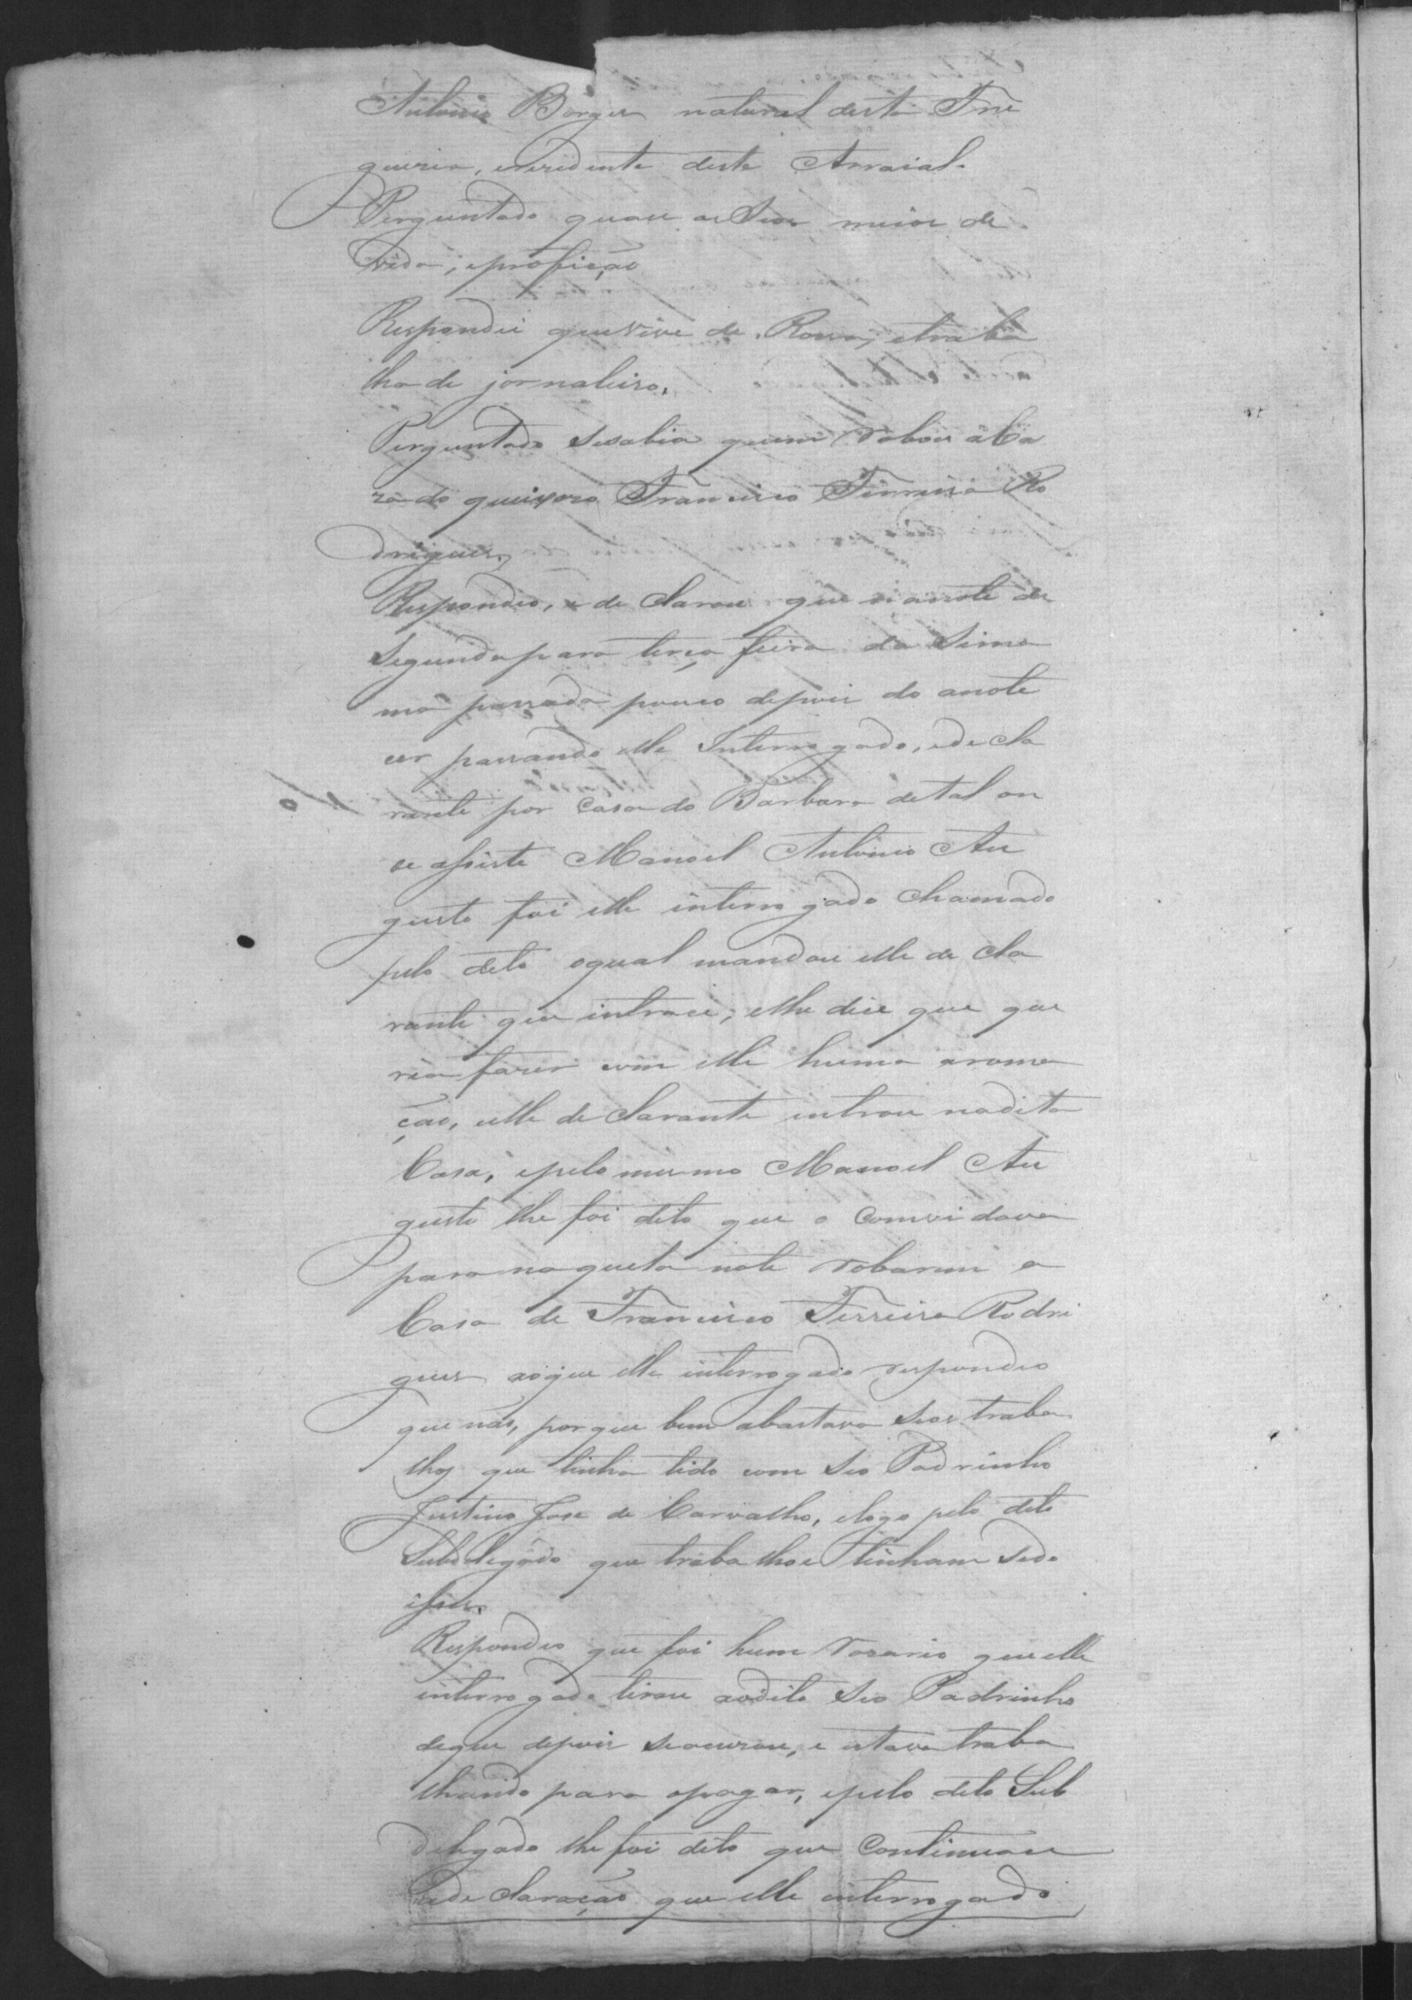 Antonio Borges natural desta Fre
guesia, eresidente deste Arraial.
Perguntado quaes os Seos meios de
vida, eprofição
Respondeu quevive de Rossa, etraba
lha de jornaleiro.
Perguntado sesabia quem robou aCa
za do queixozo Francisco Ferreira Ro
drigues,
Respondeo, e de Clarou que nanote de
Segunda para terça feira da Sema
na passada pouco depois do anote
cer passando elle Interrogado, ede cla
rante por casa da Barbara detal on
de assiste Manoel Antonio Au
gusto foi elle interrogado chamado
pelo dito oqual mandou elle de cla
rante que intrace, elhe dice que que
ria fazer com elle huma arama
ção, eelle de Clarante introu nadita
Casa, epelo mesmo Manoel Au
gusto lhe foi dito que o comvidava
para naquela note robarem a
Casa de Francisco Ferreira Rodri
gues aoque elle interrogado respondeo
que não, porque bem abastava Seos traba
lhos que tinha tido com Seo Padrinho
Justino Jose de Carvalho, elogo pelo dito
Subdelegado que trabalhos tinham sido
esses.
Respondeo que foi hum rosario que elle
interrogado tirou aodito Seo Padrinho
deque depois seacusou, e estava traba
lhando para opagar, epelo dito Sub
delegado lhe foi dito que Continuace
ade Claração que elle interrogado